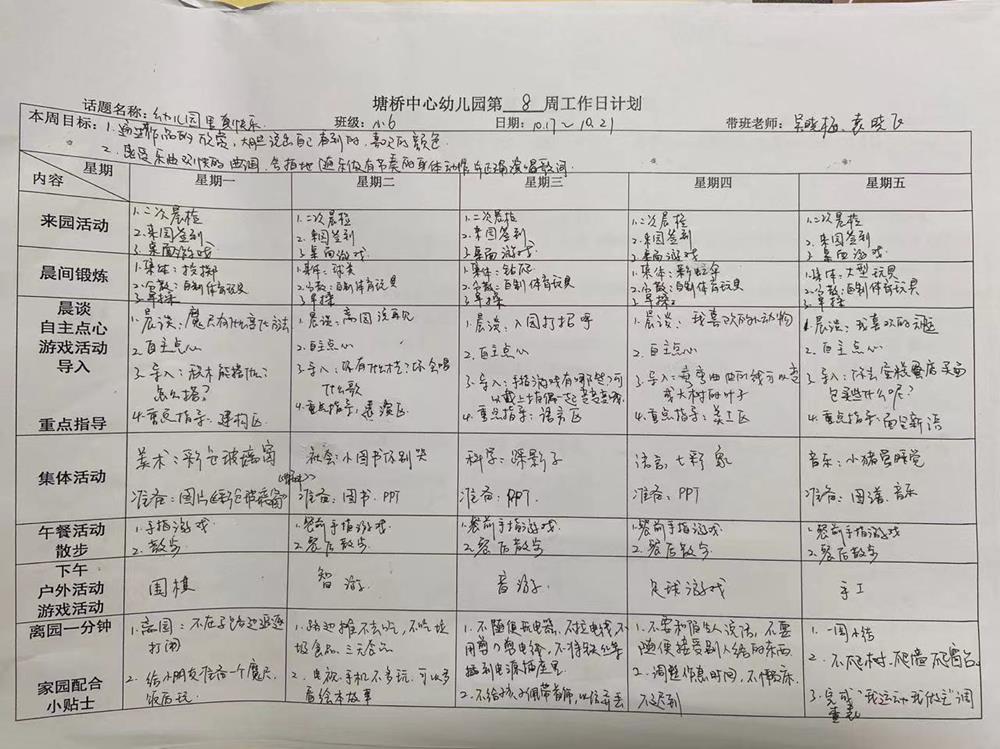 塘桥中心幼儿园第 8 周工作日计划
话题名称：幼儿园里真快乐 班级：小6 日期：10.17～10.21 带班老师：吴晓梅、袁晓飞
本周目标：1.通过作品的欣赏，大胆说出自己看到的、喜欢的颜色
2.感受乐曲欢快的曲调，会指地随乐做有节奏的身体动作并正确演唱歌词
内容 星期 星期一 星期二 星期三 星期四 星期五
来园活动
1.二次晨检 1.二次晨检 1.二次晨检 1.二次晨检 1.二次晨检
2.来园签到 2.来园签到 2.来园签到 2.来园签到 2.来园签到
3.桌面游戏 3.桌面游戏 3.桌面游戏 3.桌面游戏 3.桌面游戏
晨间锻炼
1.集体： 1.集体：球类 1.集体：钻 1.集体： 1.集体：大型玩具
2.分散：自制体育玩具 2.分散：自制体育玩具 2.分散：自制体育玩具 2.分散：自制体育玩具 2.分散：自制体育玩具
3.早操 3.早操 3.早操 3.早操 3.早操
晨谈
自主点心
游戏活动
导入
重点指导
1.晨谈：魔尺有什么变化方法 1.晨谈：离园说再见 1.晨谈：入园打招呼 1.晨谈：我喜欢的小动物 1.晨谈：我喜欢的
2.自主点心 2.自主点心 2.自主点心 2.自主点心 2.自主点心
3.导入：积木能搭什么？ 3.导入：你有什么？你会唱 3.导入：手指游戏有哪些？可 3.导入：弯弯曲曲的线可以变 3.导入：你去蛋糕店买面
怎么搭？ 什么歌 以戴上指偶一起变变变哦 成大树的叶子 包买些什么呢？
4.重点指导：建构区 4.重点指导：表演区 4.重点指导：语言区 4.重点指导：美工区 4.重点指导：面包新语
集体活动
美术：彩色玻璃窗 社会：小图书你别哭 科学：踩影子 语言：七彩象 音乐：小猪睡觉
准备：图片《彩色玻璃窗》 准备：图书、PPT 准备：PPT. 准备：PPT 准备：图谱、音乐
午餐活动
散步
1.手指游戏 1.餐前手指游戏 1.餐前手指游戏 1.餐前手指游戏 1.餐前手指游戏
2.散步 2.餐后散步 2.餐后散步 2.餐后散步 2.餐后散步
下午
户外活动
游戏活动
围棋 智游 音游 足球游戏 手工
离园一分钟
家园配合
小贴士
1.离园：不在马路边追逐 1.路边摊不去吃，不吃垃 1.不随便玩电器、不拉电线，不 1.不要和陌生人说话，不要 1.一周小结
打闹 圾食品、三无食品 用剪刀剪电线，不将铁丝等 随便接受别人给的东西 2.不爬树、爬墙、爬窗台。
插到电源插座里
2.给小朋友准备一个魔尺， 2.电视、手机不多玩，可以多 2.不给孩子佩带首饰，以防丢 2.调整作息时间，不睡懒床， 3.完成“我运动我健康”调
饭后玩 看绘本故事 不迟到 查表